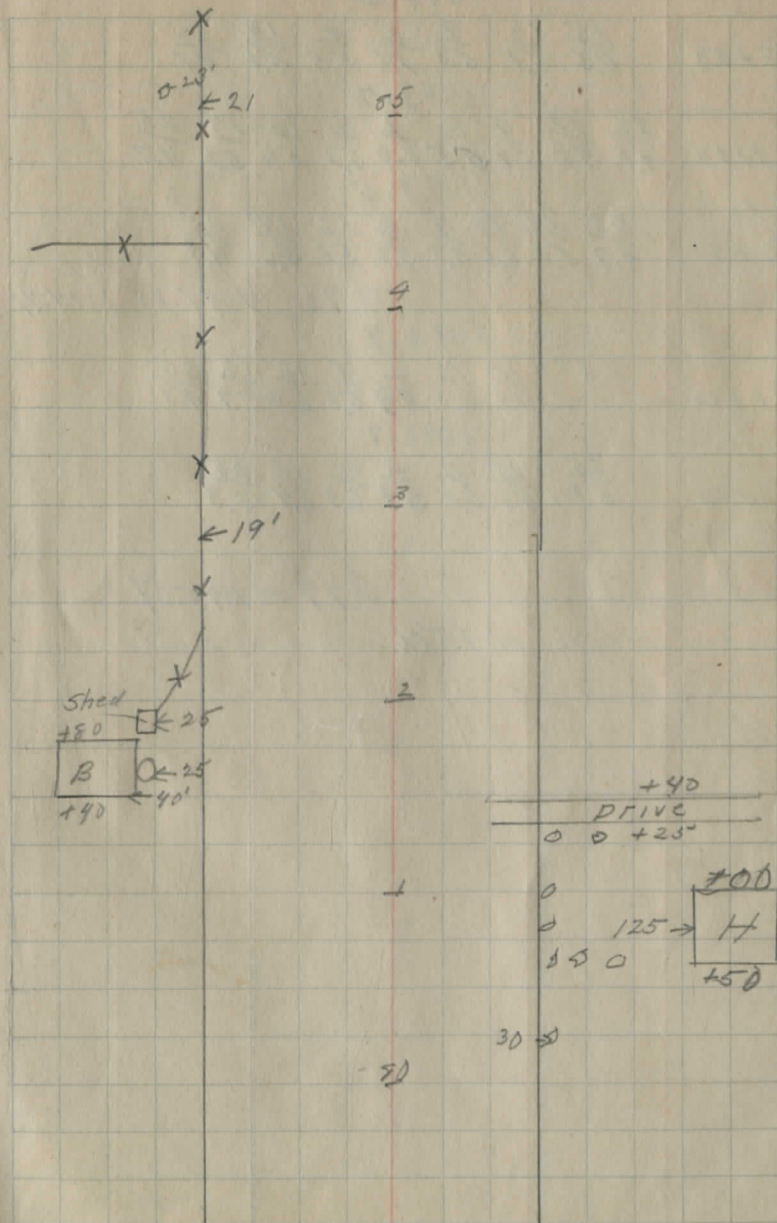 23'
← 21
55
4
3
← 19'
2
Shed
← 25
+80
B
← 25
+40
← 40'
+40
Drive
+25
1
+00
125 →
H
+50
30 →
50